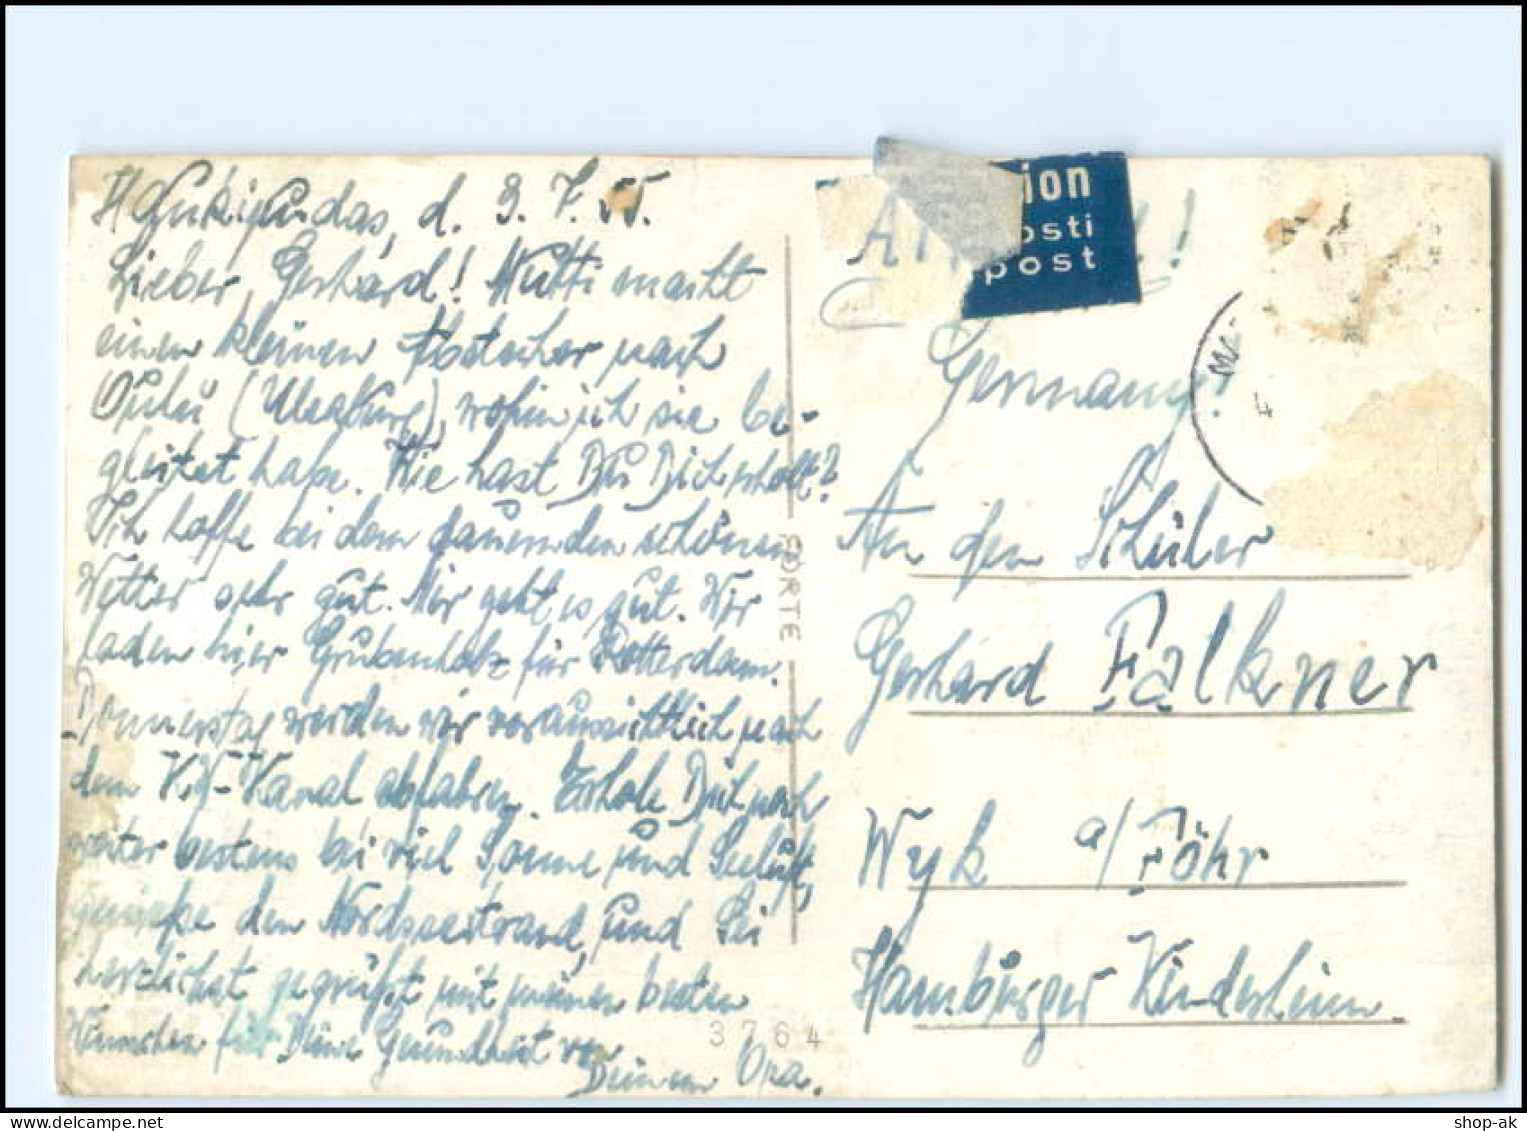 Haukipudas, d. 3. 7. 55.
Lieber Gerhard! Mutti macht
einen kleinen Abstecher nach
Oulu (Uleaborg), wohin ich sie be-
gleitet habe. Wie hast Du Dich erholt?
Ich hoffe bei dem dauernden schönen
Wetter sehr gut. Mir geht es gut. Wir
laden hier Grubenholz für Rotterdam.
Donnerstag werden wir voraussichtlich nach
dem KW-Kanal abfahren. Erhole Dich noch
weiter bestens bei viel Sonne und Seeluft,
genieße den Nordseestrand, und sei
herzlichst gegrüßt mit meinen besten
Wünschen für Deine Gesundheit von
Deinem Opa.
ion
osti
post
Germany!
An den Schüler
Gerhard Falkner
Wyk a/Föhr
Hamburger Kinderheim.
CORTE
3764
shop-ak